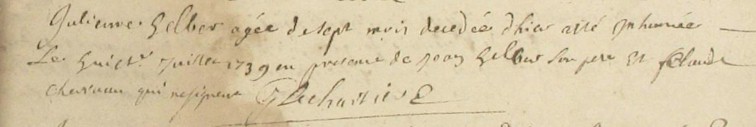 Julienne Helber agée de sept mois decedée d'hier a eté inhumée
Le huict.e Juillet 1739 en presence de jean Helber son pere Et
qui ne signent